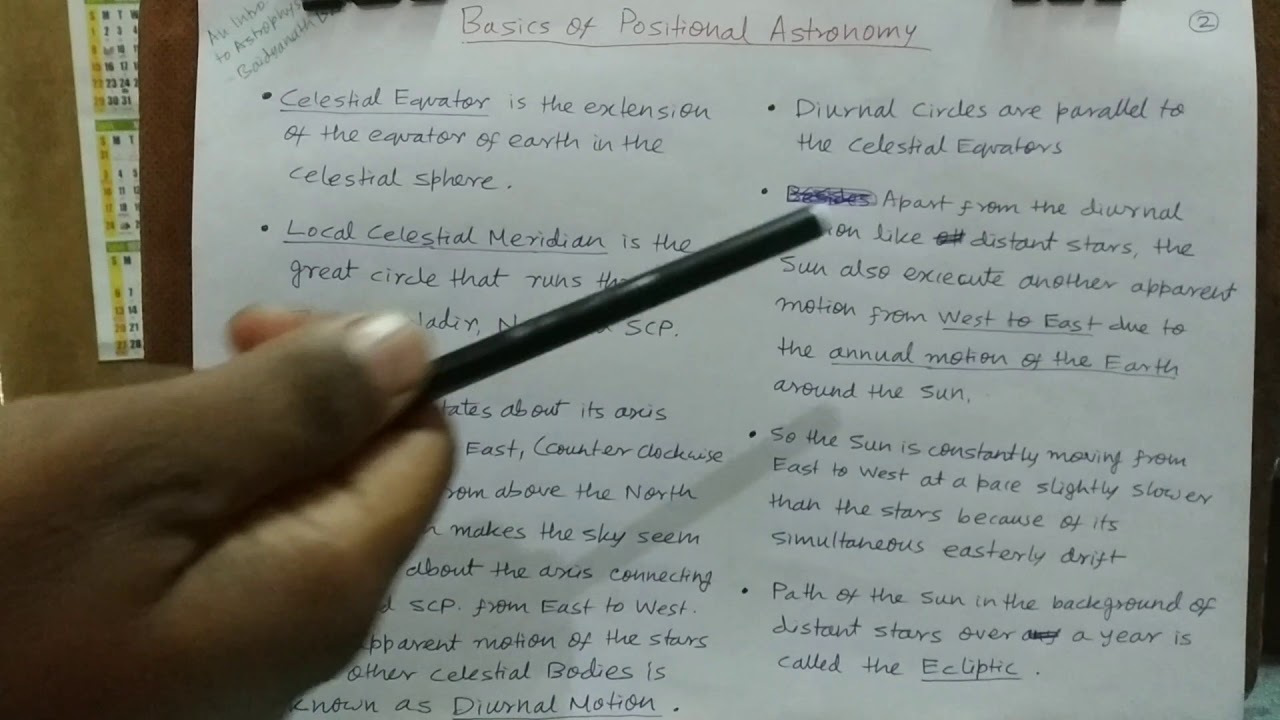 Basics of Positional Astronomy
2
An Intro
to Astrophys
Baidyanath
• Celestial Equator is the extension
of the equator of earth in the
celestial sphere.
• Local Celestial Meridian is the
great circle that runs
ladir, N SCP.
tates about its axis
East, (counter clockwise
rom above the North
makes the sky seem
about the axis connecting
SCP. from East to West.
pparent motion of the stars
other celestial Bodies is
known as Diurnal Motion.
• Diurnal Circles are parallel to
the Celestial Equators
• Besides Apart from the diurnal
ion like distant stars, the
Sun also exiecute another apparent
motion from West to East due to
the annual motion of the Earth
around the Sun.
• So the Sun is constantly moving from
East to West at a pace slightly slower
than the stars because of its
simultaneous easterly drift
• Path of the Sun in the background of
distant stars over a year is
called the Ecliptic.